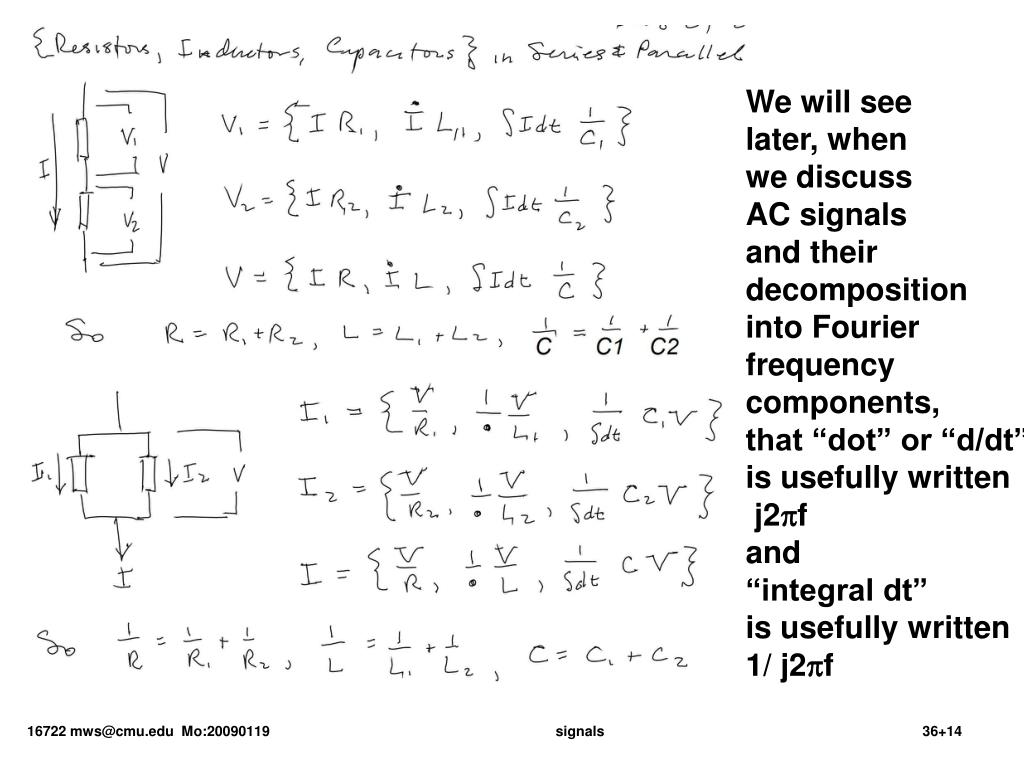 {Resistors, Inductors, Capacitors} in Series & Parallel
I
V₁
V₂
V
V₁ = {I R₁, İ L₁, ∫Idt 1/C₁}
V₂ = {I R₂, İ L₂, ∫Idt 1/C₂}
V = {I R, İ L, ∫Idt 1/C}
So R = R₁+R₂, L = L₁+L₂, 1/C = 1/C1 + 1/C2
I₁
I₂
V
I
I₁ = {V/R₁, 1/• V/L₁, 1/∫dt C₁V}
I₂ = {V/R₂, 1/• V/L₂, 1/∫dt C₂V}
I = {V/R, 1/• V/L, 1/∫dt CV}
So 1/R = 1/R₁ + 1/R₂, 1/L = 1/L₁ + 1/L₂, C = C₁ + C₂
We will see
later, when
we discuss
AC signals
and their
decomposition
into Fourier
frequency
components,
that “dot” or “d/dt”
is usefully written
j2πf
and
“integral dt”
is usefully written
1/ j2πf
16722 mws@cmu.edu Mo:20090119
signals
36+14